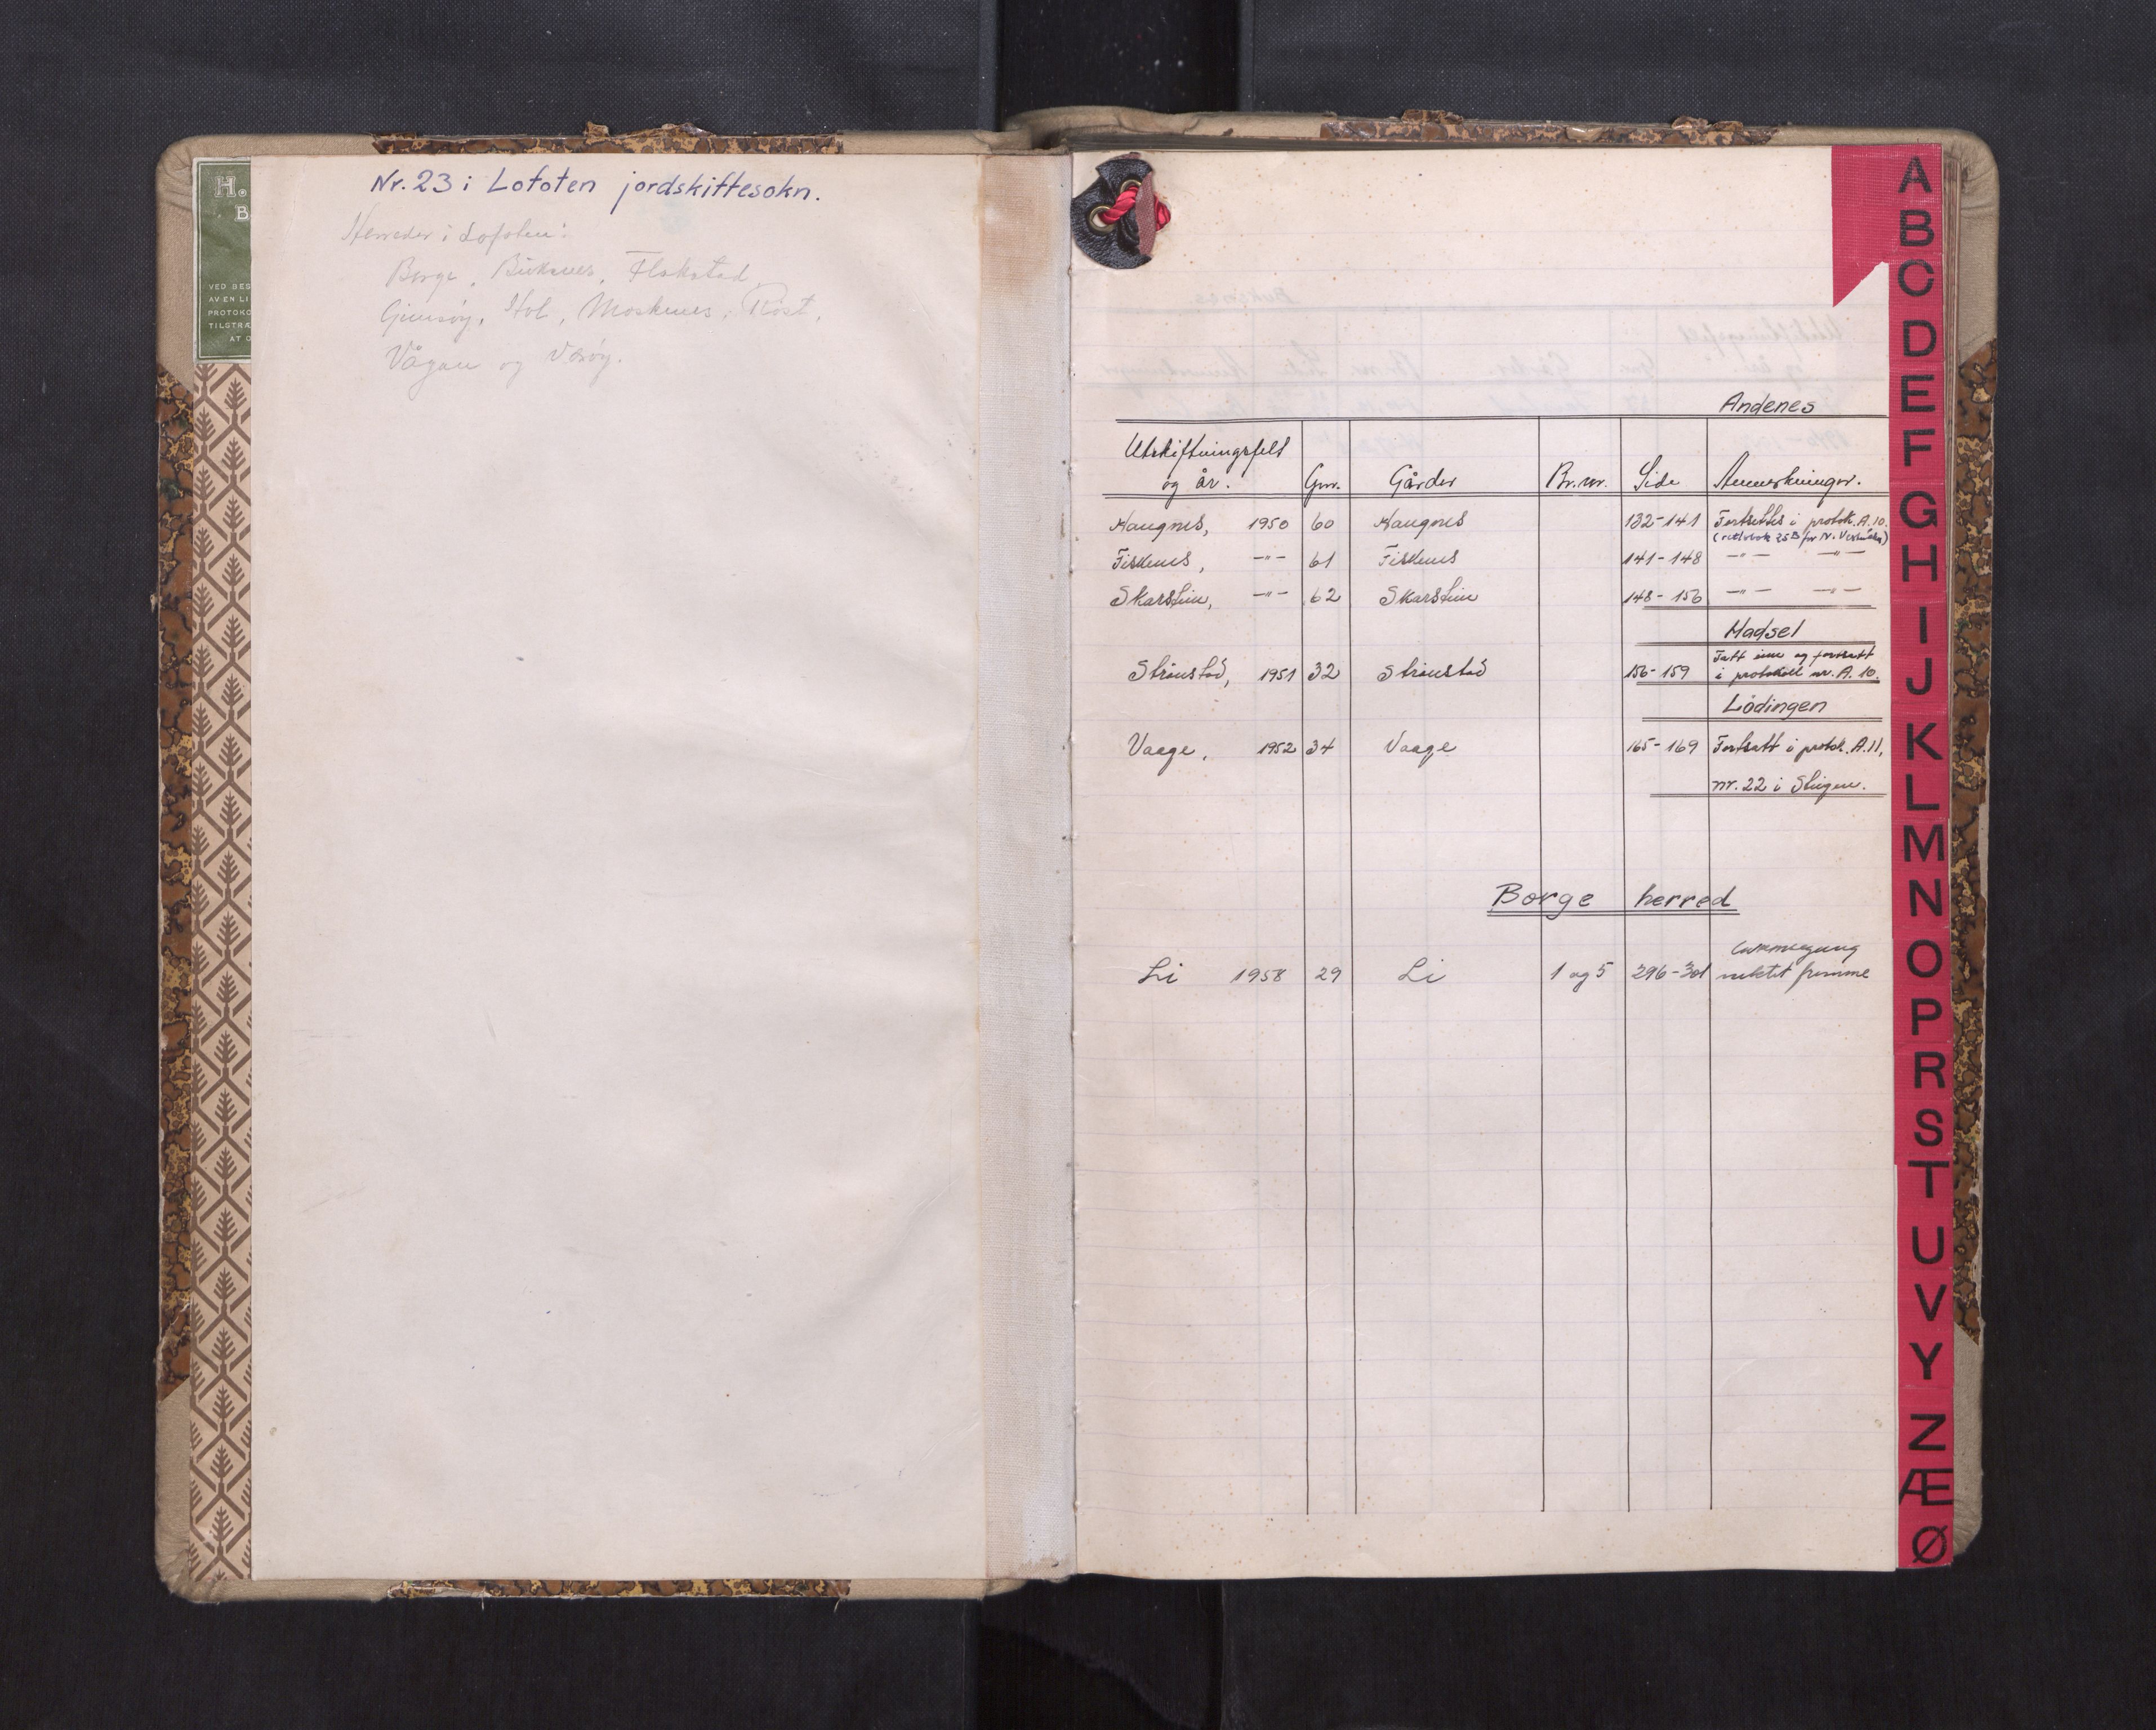 Nr. 23 i Lofoten jordskiftesokn.
Herreder i Lofoten:
Borge, Buksnes, Flakstad
Gimsøy, Hol, Moskenes, Röst,
Vågan og Værøy.
H.
B
VED BES
AV EN LI
PROTOKO
TILSTRÆ
AT O
Andenes
Utskiftningsfelt og år. Gnr. Gårder Br.nr. Side Anmerkninger.
Haugnes, 1950 60 Haugnes 132-141 Fortsettes i protok. A.10.
(rettsbok 25B for N. Vesterålen)
Fiskenes, -"- 61 Fiskenes 141-148 -"- -"-
Skarstein, -"- 62 Skarstein 148-156 -"- -"-
Hadsel
Strönstad, 1951 32 Strönstad 156-159 Tatt inn og fortsatt
i protokoll nr. A. 10.
Lödingen
Vaage, 1952 34 Vaage 165-169 Fortsatt i protok. A.11,
nr. 22 i Steigen.
Borge herred
Li 1958 29 Li 1 og 5 296-301
nektet fremme
A
B
C
D
E
F
G
H
I
J
K
L
M
N
O
P
R
S
T
U
V
Y
Z
Æ
Ø